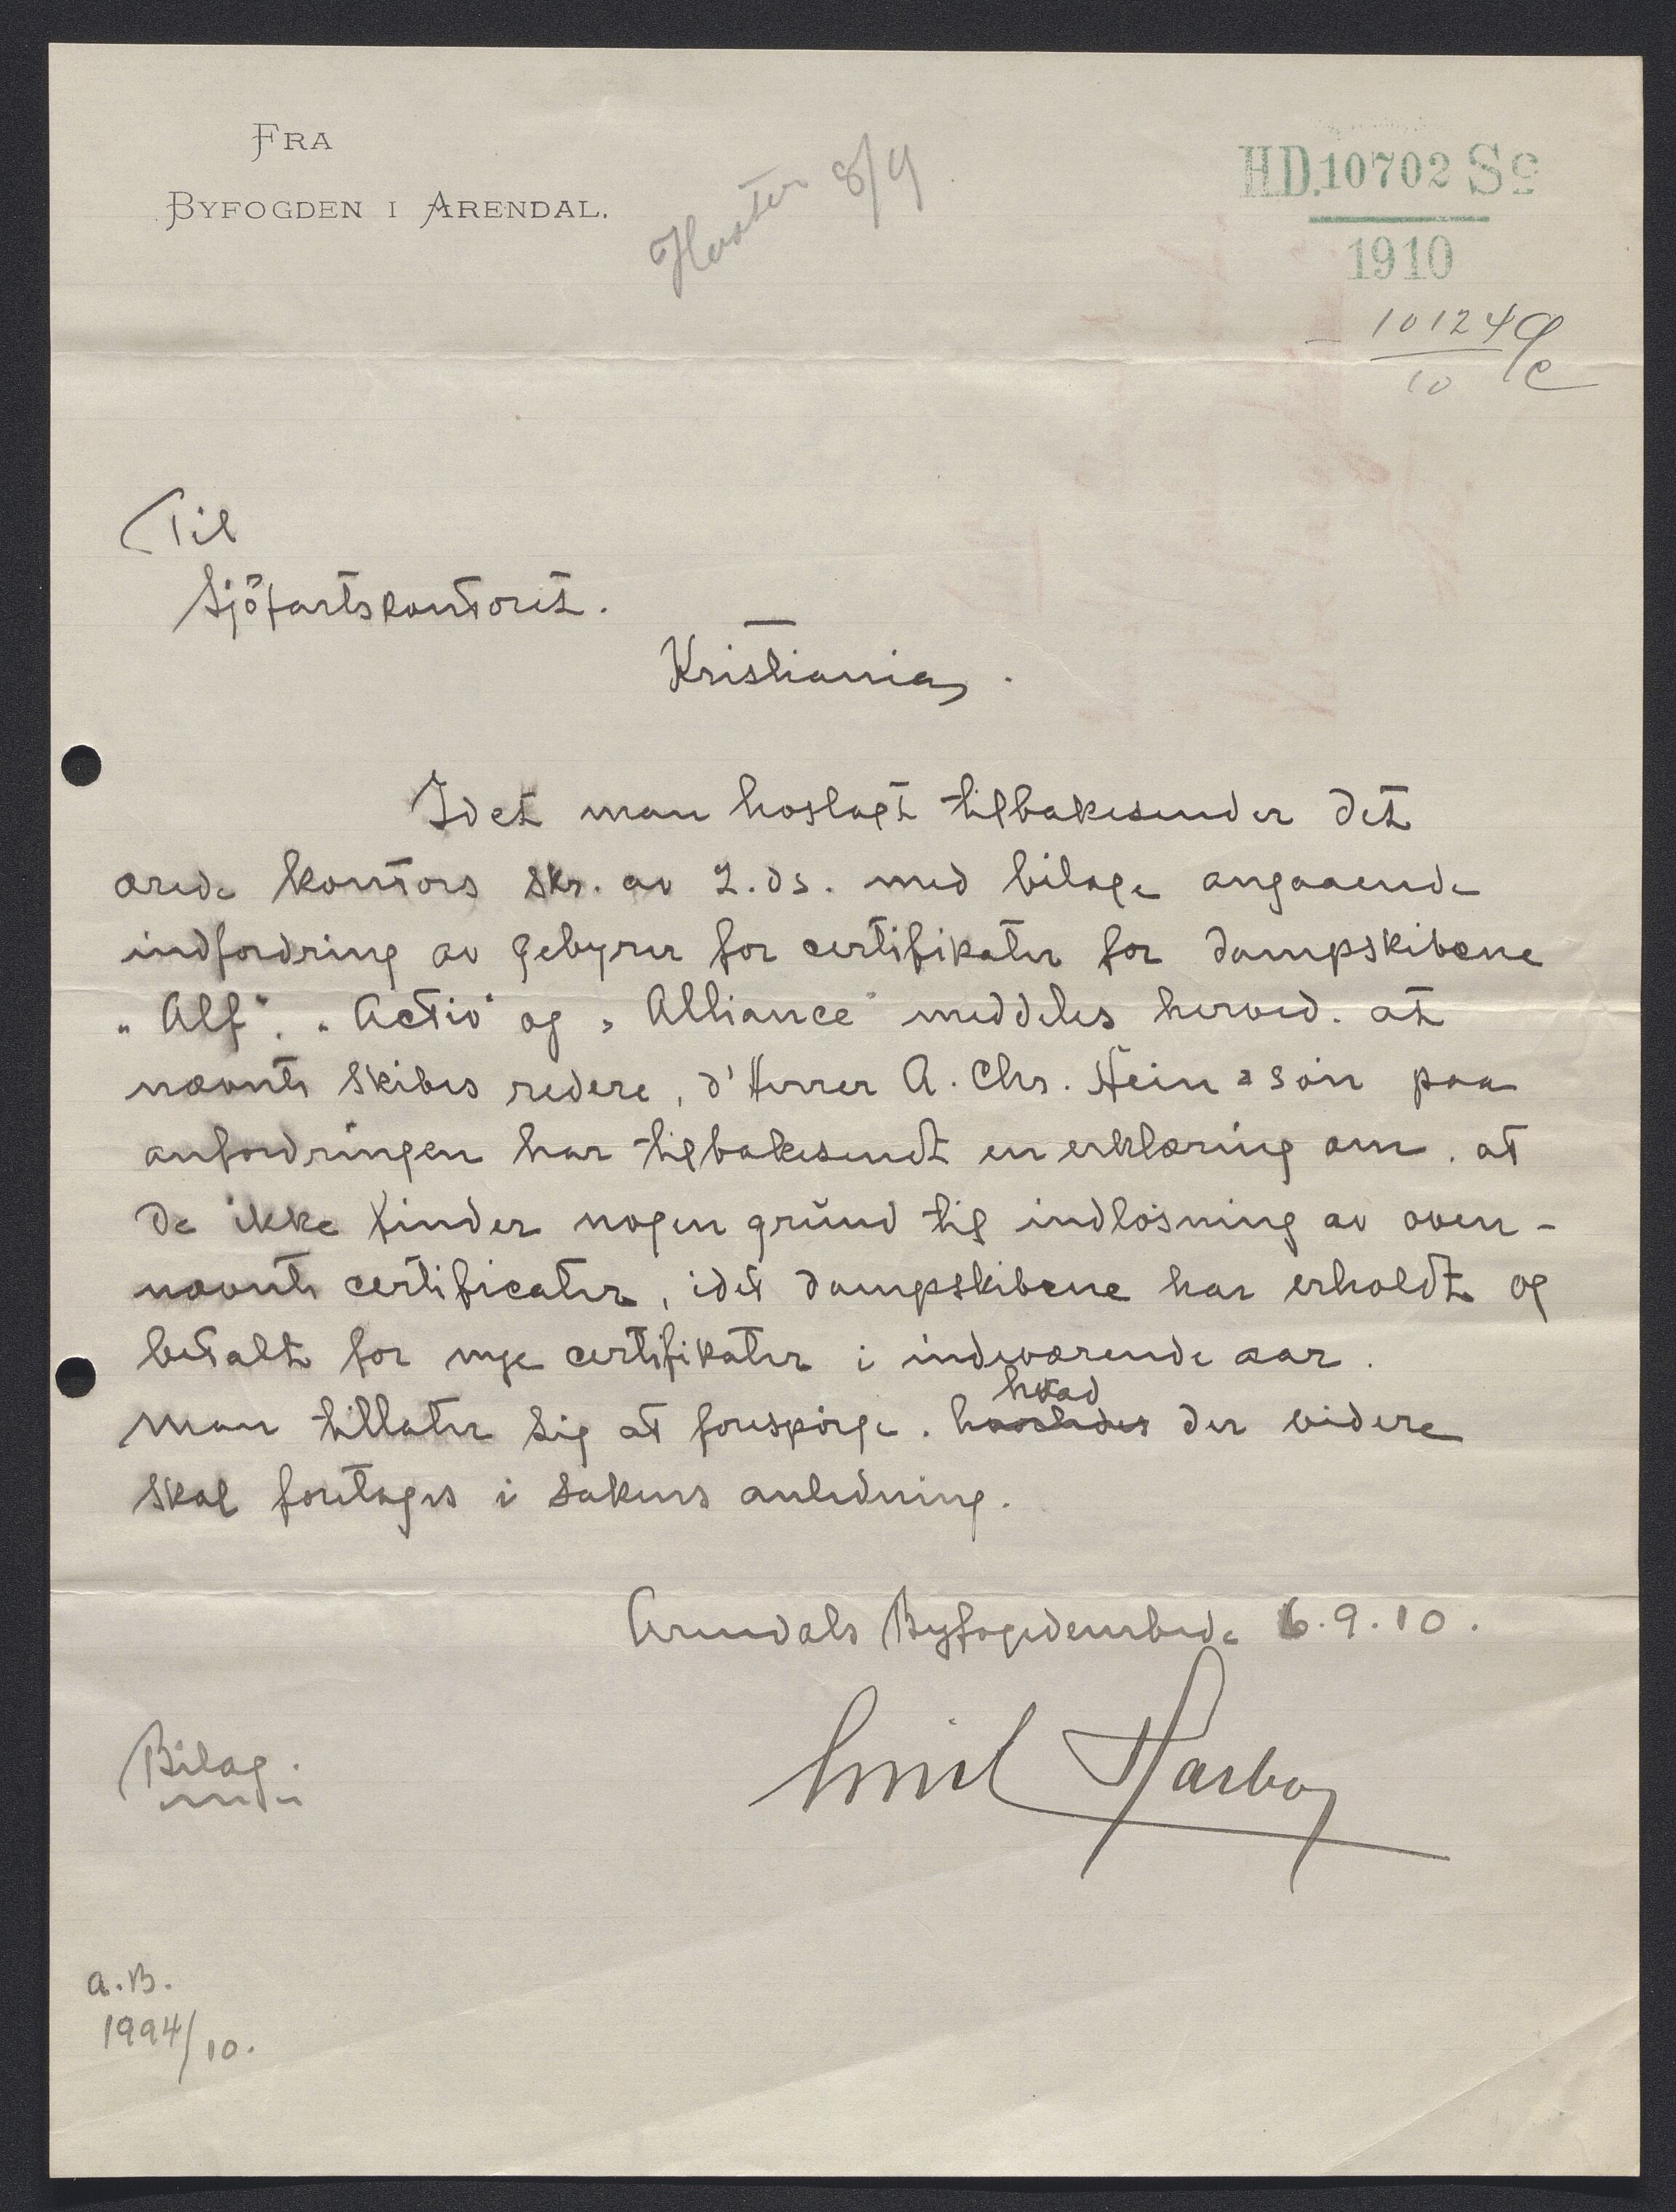 FRA
BYFOGDEN I ARENDAL.
Haster 8/9
H.D. 10702 Sc
1910
10124
10
Til
Sjöfartskontoret.
Kristiania.
Idet man hoslagt tilbakesender det
ærede kontors skr. av 2. ds. med bilage angaaende
indfordring av gebyrer for certifikater for dampskibene
„Alf", „Activ" og „Alliance" meddeles herved. at
nævnte skibes redere, d'Herrer A. Chr. & Sön paa
anfordringen har tilbakesendt en erklæring om. at
de ikke finder nogen grund til indløsning av oven-
nævnte certificater, idet dampskibene har erholdt og
betalt for nye certifikater i indeværende aar.
Man tillater sig at forespörge. hvad der videre
skal foretages i sakens anledning.
Arendals Byfogedembede 6.9.10.
Bilag.
Emil
a.B.
1994/10.